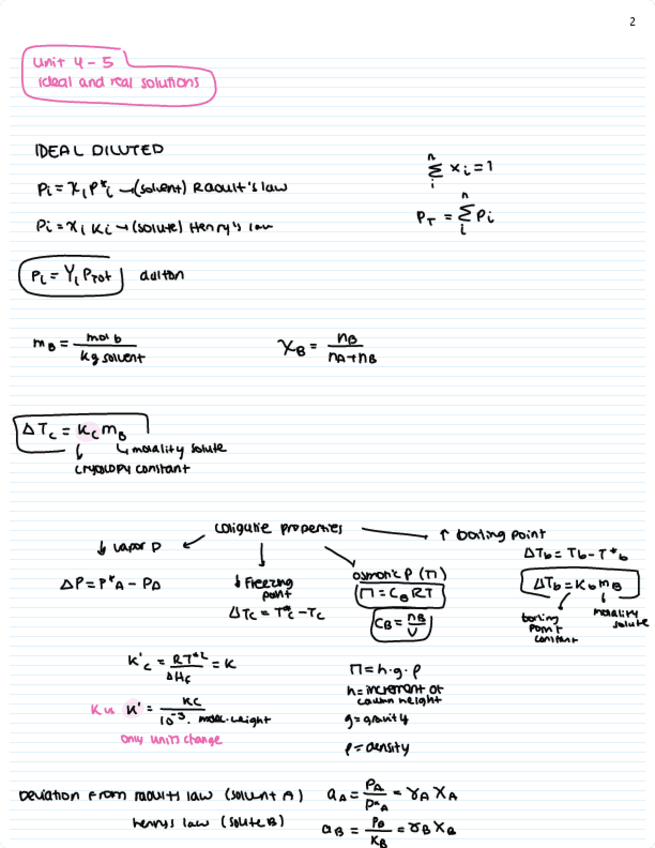 2
Unit 4-5
ideal and real solutions
IDEAL DILUTED
Pi = xi P*i → (solvent) Raoult's law
Pi = xi Ki → (solute) Henry's law
Pi = Yi Ptot dalton
n Σ i xi = 1
PT = n Σ i Pi
mB = mol b / kg solvent
XB = nB / nA + nB
ΔTc = Kc mB
↳ molality solute
cryoscopy constant
coligative properties
↓ vapor P
ΔP = P*A - PA
↓ Freezing
point
ΔTc = T*c - Tc
osmotic P (Π)
Π = CB RT
CB = nB / V
↑ boiling point
ΔTb = Tb - T*b
ΔTb = Kb mB
boiling
point
constant
molality
solute
K'c = RT*2 / ΔHf = K
K vs K' = Kc / 10^-3 · molec. weight
only units change
Π = h · g · ρ
h = increment of
column height
g = gravity
ρ = density
Deviation from raoults law (solvent A) aA = PA / P*A = γA XA
henrys law (solute B) aB = PB / KB = γB XB